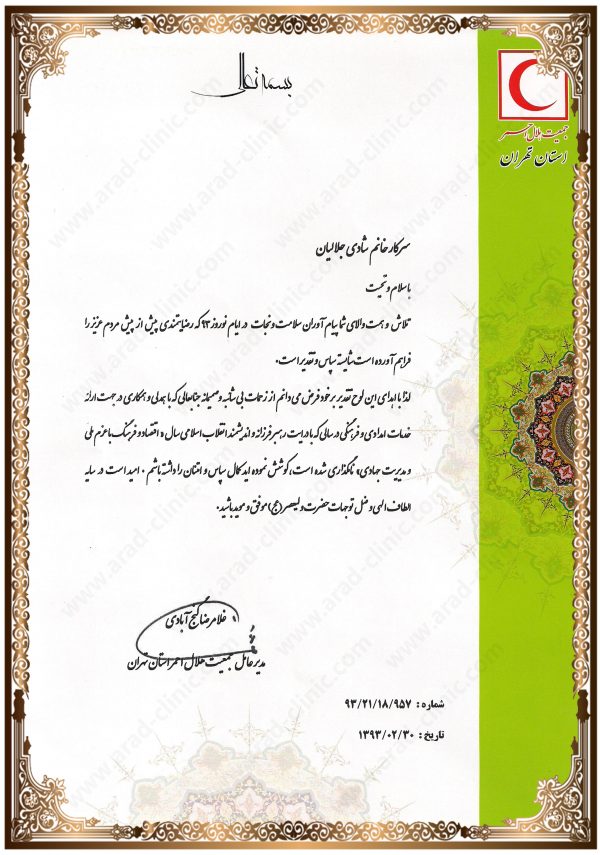 بسمه تعالی
جمعیت هلال احمر
استان تهران
سرکار خانم شادی جلالیان
با سلام و تحیت
تلاش و همت والای شما پیام آوران سلامت و نجات در ایام نوروز ۹۳ که رضایتمندی بیش از پیش مردم عزیز را
فراهم آورده است شایسته سپاس و تقدیر است.
لذا با اهدای این لوح تقدیر بر خود فرض می دانم از زحمات بی شائبه و صمیمانه جنابعالی که با همدلی و همکاری در جهت ارائه
خدمات امدادی و فرهنگی در سالی که با درایت رهبر فرزانه و اندیشمند انقلاب اسلامی سال « اقتصاد و فرهنگ با عزم ملی
و مدیریت جهادی» نامگذاری شده است، کوشش نموده اید کمال سپاس و امتنان را داشته باشم . امید است در سایه
الطاف الهی و ظل توجهات حضرت ولیعصر (عج) موفق و موید باشید.
غلامرضا گنج آبادی
مدیرعامل جمعیت هلال احمر استان تهران
شماره : ۹۳/۲۱/۱۸/۹۵۷
تاریخ : ۱۳۹۳/۰۲/۳۰
www.arad-clinic.com